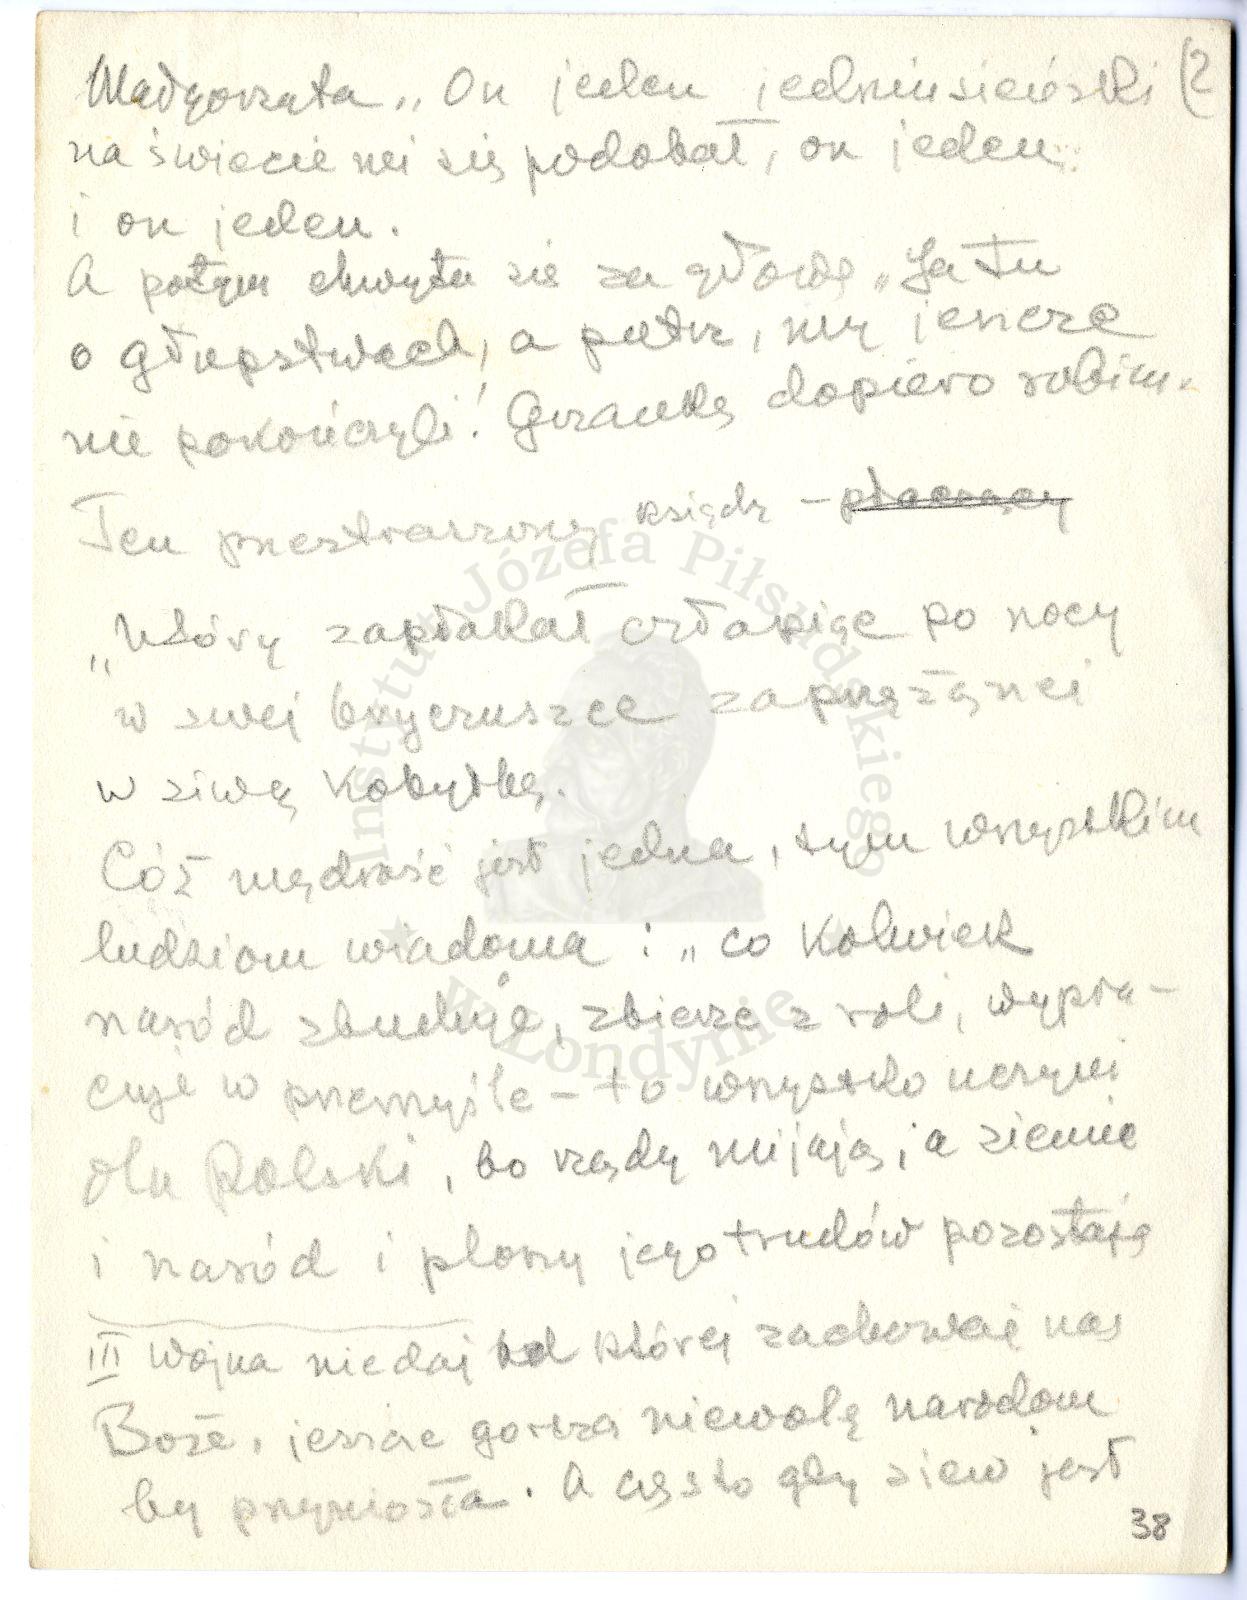 Małgorzata „On jeden jedniusieńki (2
na świecie mi się podobał, on jeden
i on jeden.
A potym chwyta się za głowę „Ja tu
o głupstwach, a patrz, my jeszcze
nie pokończyli! Grankę dopiero robim.
Ten przestraszony ksiądz – płaczący
„Który zapłakał człapiąc po nocy
w swej bryczuszce zaprzężonej
w siwą kobyłkę.
Cóż mądrość jest jedna, tym wszystkim
ludziom wiadoma: „co kolwiek
naród zbuduje, zbierze z roli, wypra-
cuje w przemyśle – to wszystko uczyni
dla Polski, bo rządy mijają, a ziemie
i naród i plony jego trudów pozostają
III wojna niedaj od której zachowaj nas
Boże, jeszcze gorszą niewolę narodom
by przyniosła. A często gdy siew jest
38
Instytut Józefa Piłsudskiego
w Londynie